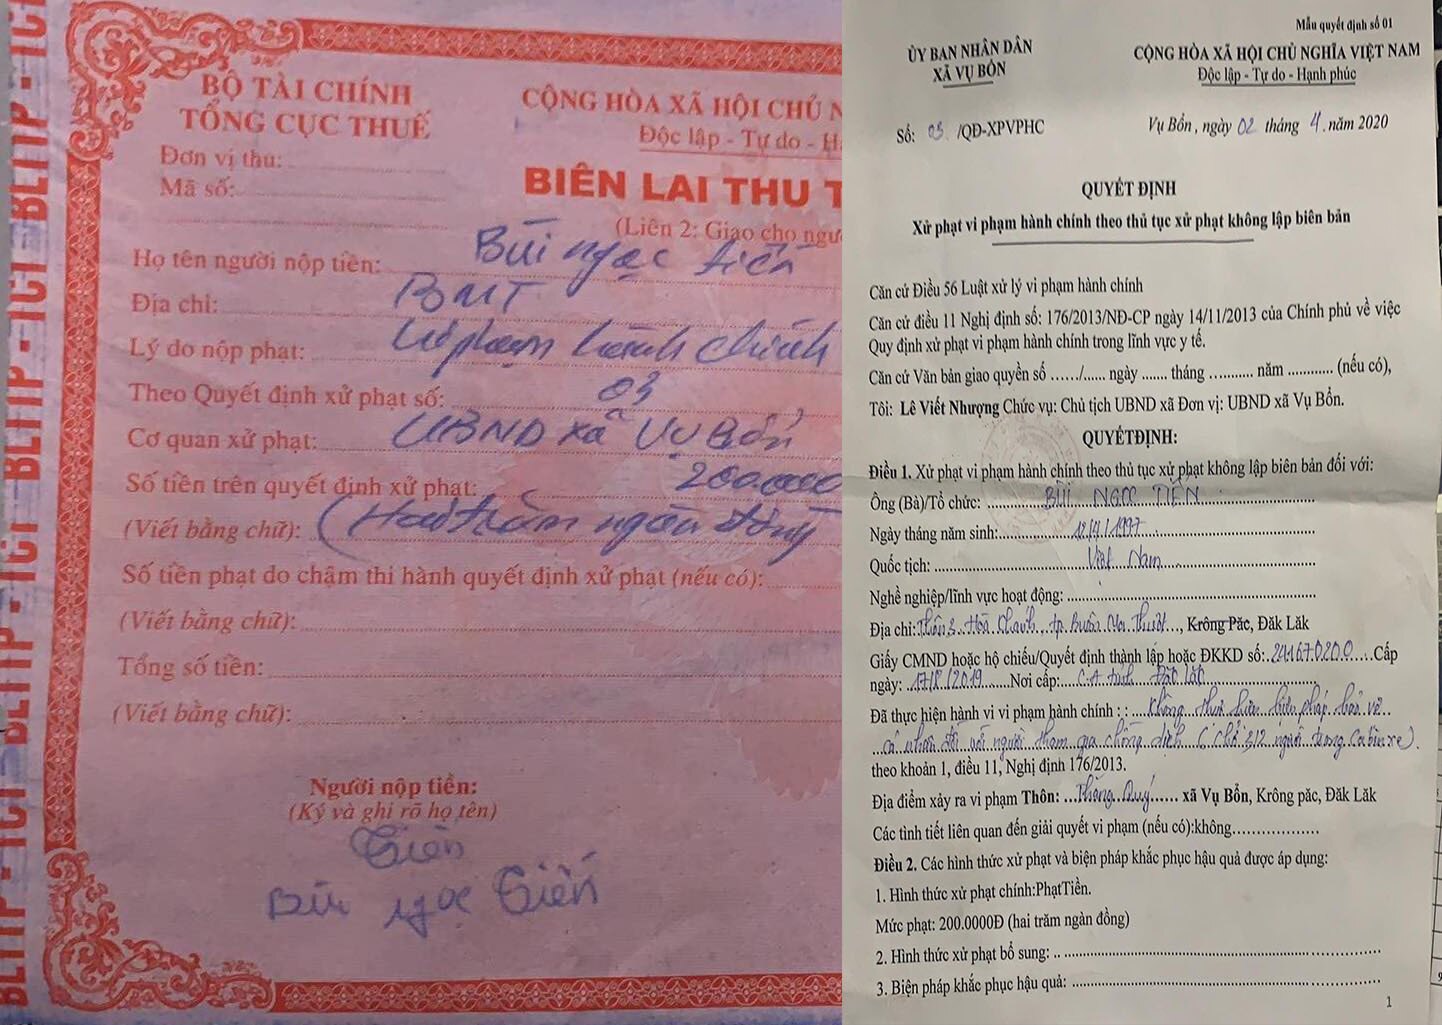 BỘ TÀI CHÍNH
TỔNG CỤC THUẾ
CỘNG HÒA XÃ HỘI CHỦ N
Độc lập - Tự do - H
Đơn vị thu:
Mã số:
BIÊN LAI THU T
(Liên 2: Giao cho ngư
Họ tên người nộp tiền: Bùi ngọc tiến
Địa chỉ: BMT
Lý do nộp phạt: Vi phạm hành chính
Theo Quyết định xử phạt số: 03
Cơ quan xử phạt: UBND xã Vụ Bổn
Số tiền trên quyết định xử phạt: 200.000
(Viết bằng chữ): (Hai trăm ngàn đồng
Số tiền phạt do chậm thi hành quyết định xử phạt (nếu có):
(Viết bằng chữ):
Tổng số tiền:
(Viết bằng chữ):
Người nộp tiền:
(Ký và ghi rõ họ tên)
Tiến
Bùi ngọc Tiến
BLTTP - ICI BLTTP - ICI BLTTP - ICI BLTTP - ICI
Mẫu quyết định số 01
ỦY BAN NHÂN DÂN
XÃ VỤ BỔN
CỘNG HÒA XÃ HỘI CHỦ NGHĨA VIỆT NAM
Độc lập - Tự do - Hạnh phúc
Số: 03 /QĐ-XPVPHC
Vụ Bổn, ngày 02 tháng 4 năm 2020
QUYẾT ĐỊNH
Xử phạt vi phạm hành chính theo thủ tục xử phạt không lập biên bản
Căn cứ Điều 56 Luật xử lý vi phạm hành chính
Căn cứ điều 11 Nghị định số: 176/2013/NĐ-CP ngày 14/11/2013 của Chính phủ về việc
Quy định xử phạt vi phạm hành chính trong lĩnh vực y tế.
Căn cứ Văn bản giao quyền số ....../...... ngày ....... tháng .......... năm ........... (nếu có),
Tôi: Lê Viết Nhượng Chức vụ: Chủ tịch UBND xã Đơn vị: UBND xã Vụ Bổn.
QUYẾTĐỊNH:
Điều 1. Xử phạt vi phạm hành chính theo thủ tục xử phạt không lập biên bản đối với:
Ông (Bà)/Tổ chức: BÙI NGỌC TIẾN
Ngày tháng năm sinh: 12/4/1997
Quốc tịch: Việt Nam
Nghề nghiệp/lĩnh vực hoạt động:
Địa chỉ: Thôn 3 Hòa Khánh, tp. Buôn Ma Thuột, Krông Păc, Đăk Lăk
Giấy CMND hoặc hộ chiếu/Quyết định thành lập hoặc ĐKKD số: 241670200 Cấp
ngày: 17/8/2019 Nơi cấp: C.A tỉnh Đăk Lăk
Đã thực hiện hành vi vi phạm hành chính : : Không thực hiện biện pháp bảo vệ
cá nhân đối với người tham gia chống dịch (chở 3/2 người trong cabin xe).
theo khoản 1, điều 11, Nghị định 176/2013.
Địa điểm xảy ra vi phạm Thôn: Thăng Quý xã Vụ Bổn, Krông păc, Đăk Lăk
Các tình tiết liên quan đến giải quyết vi phạm (nếu có):không
Điều 2. Các hình thức xử phạt và biện pháp khắc phục hậu quả được áp dụng:
1. Hình thức xử phạt chính:PhạtTiền.
Mức phạt: 200.0000Đ (hai trăm ngàn đồng)
2. Hình thức xử phạt bổ sung:
3. Biện pháp khắc phục hậu quả:
1